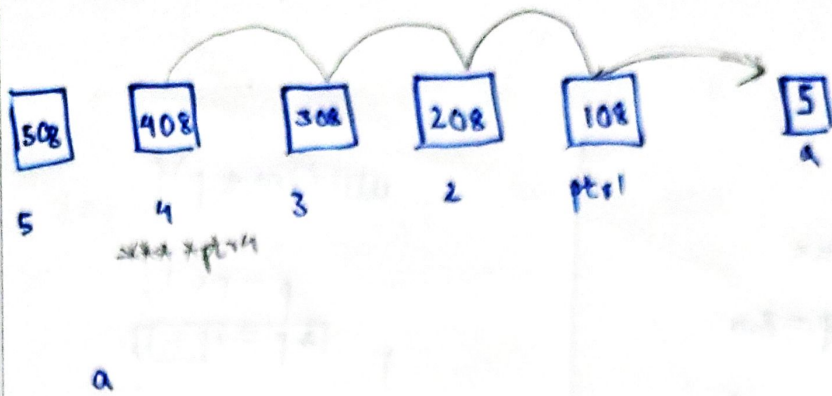 508 408 308 208 108 5
5 4 3 2 ptr1 a
****ptr4
a